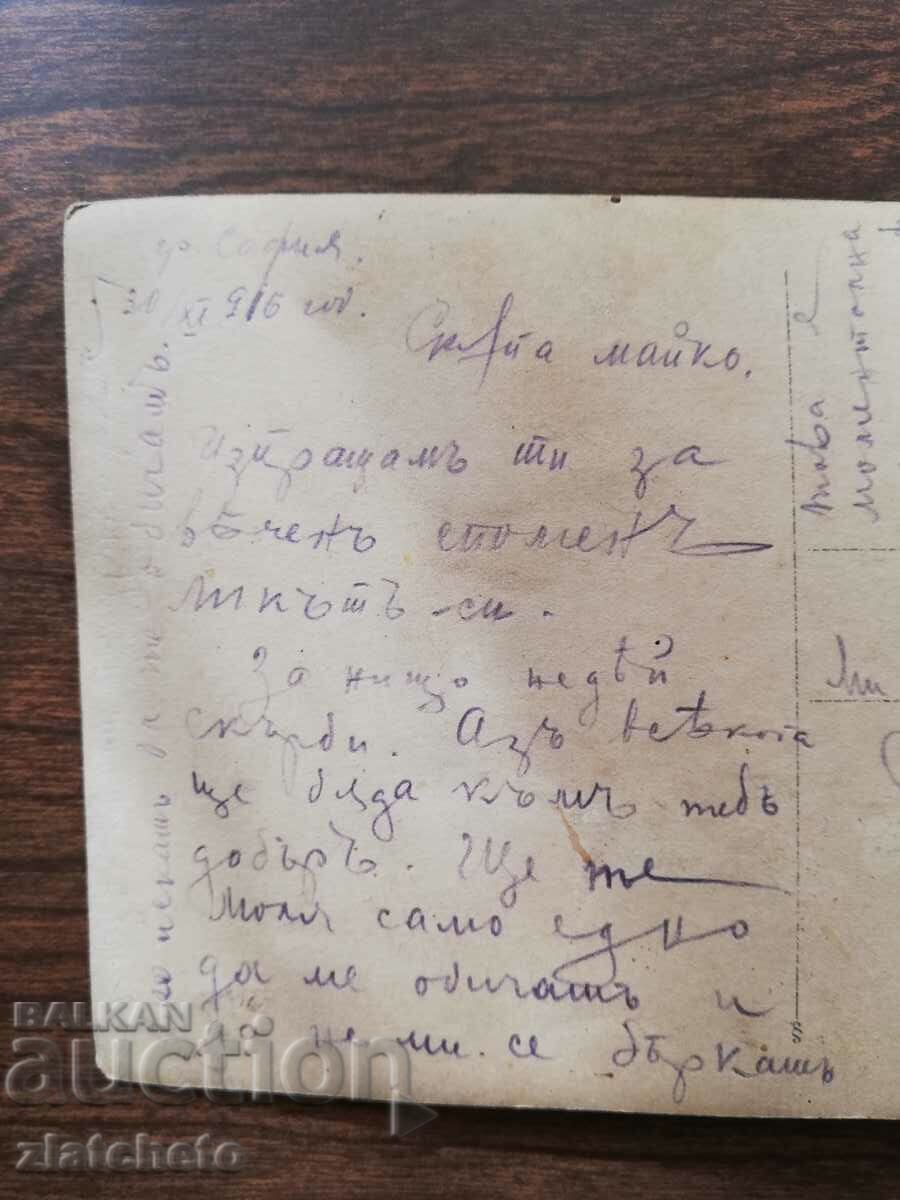 гр София.
30/XI 916 год.
Скѫпа майко.
Изпращамъ ти за
вѣченъ споменъ
ликътъ-си.
За нищо недѣй
скърби. Азъ всѣкога
ще бѫда къмъ тебъ
добъръ. Ще те
моля само едно
да ме обичашъ и
да не ми се бъркашъ
искашъ да те обичамъ.
това е
моментална
Ми
BALKAN
auction
zlatcheto